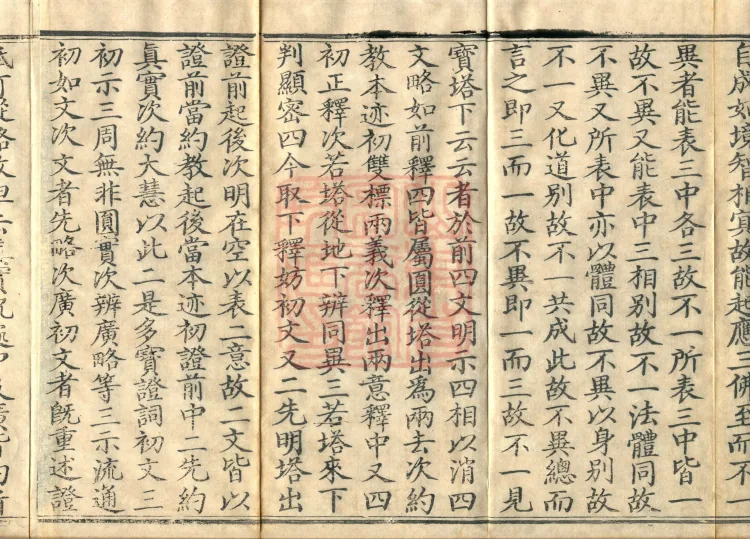 自成如境智相冥故能起應三佛至而不一
異者能表三中各三故不一所表三中皆一
故不異又能表中三相別故不一法體同故
不異又所表中亦以體同故不異以身別故
不一又化道別故不一共成此故不異總而
言之即三而一故不異即一而三故不一見
寶塔下云云者於前四文明示四相以消四
文略如前釋四皆屬圓從塔出為兩去次約
教本迹初雙標兩義次釋出兩意釋中又四
初正釋次若塔從地下辨同異三若塔來下
判顯密四今取下釋妨初文又二先明塔出
證前起後次明在空以表二意故二文皆以
證前當約教起後當本迹初證前中二先約
真實次約大慧以此二是多寶證詞初文三
初示三周無非圓實次辨廣略等三示流通
初如文次文者先略次廣初文者既重述證